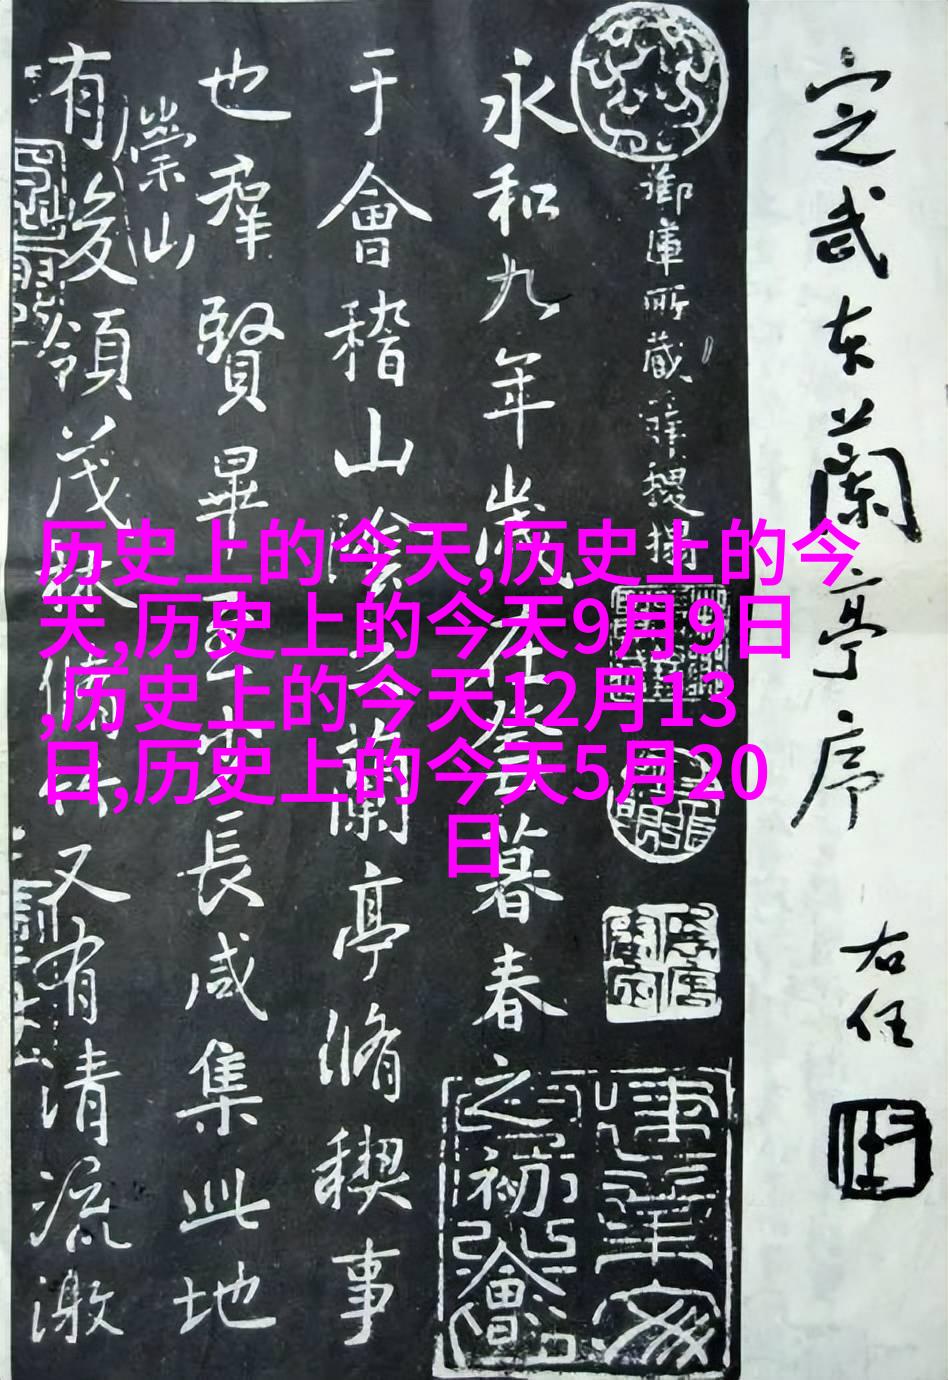 定武本蘭亭序
右任
御庫所藏薛稷搨
永和九年歲在癸丑暮春之初會
于會稽山陰之蘭亭脩稧事
也羣賢畢至少長咸集此地
崇山
有峻領茂林脩竹又有清流激
历史上的今天,历史上的今
天,历史上的今天9月9日
,历史上的今天12月13
日,历史上的今天5月20
日